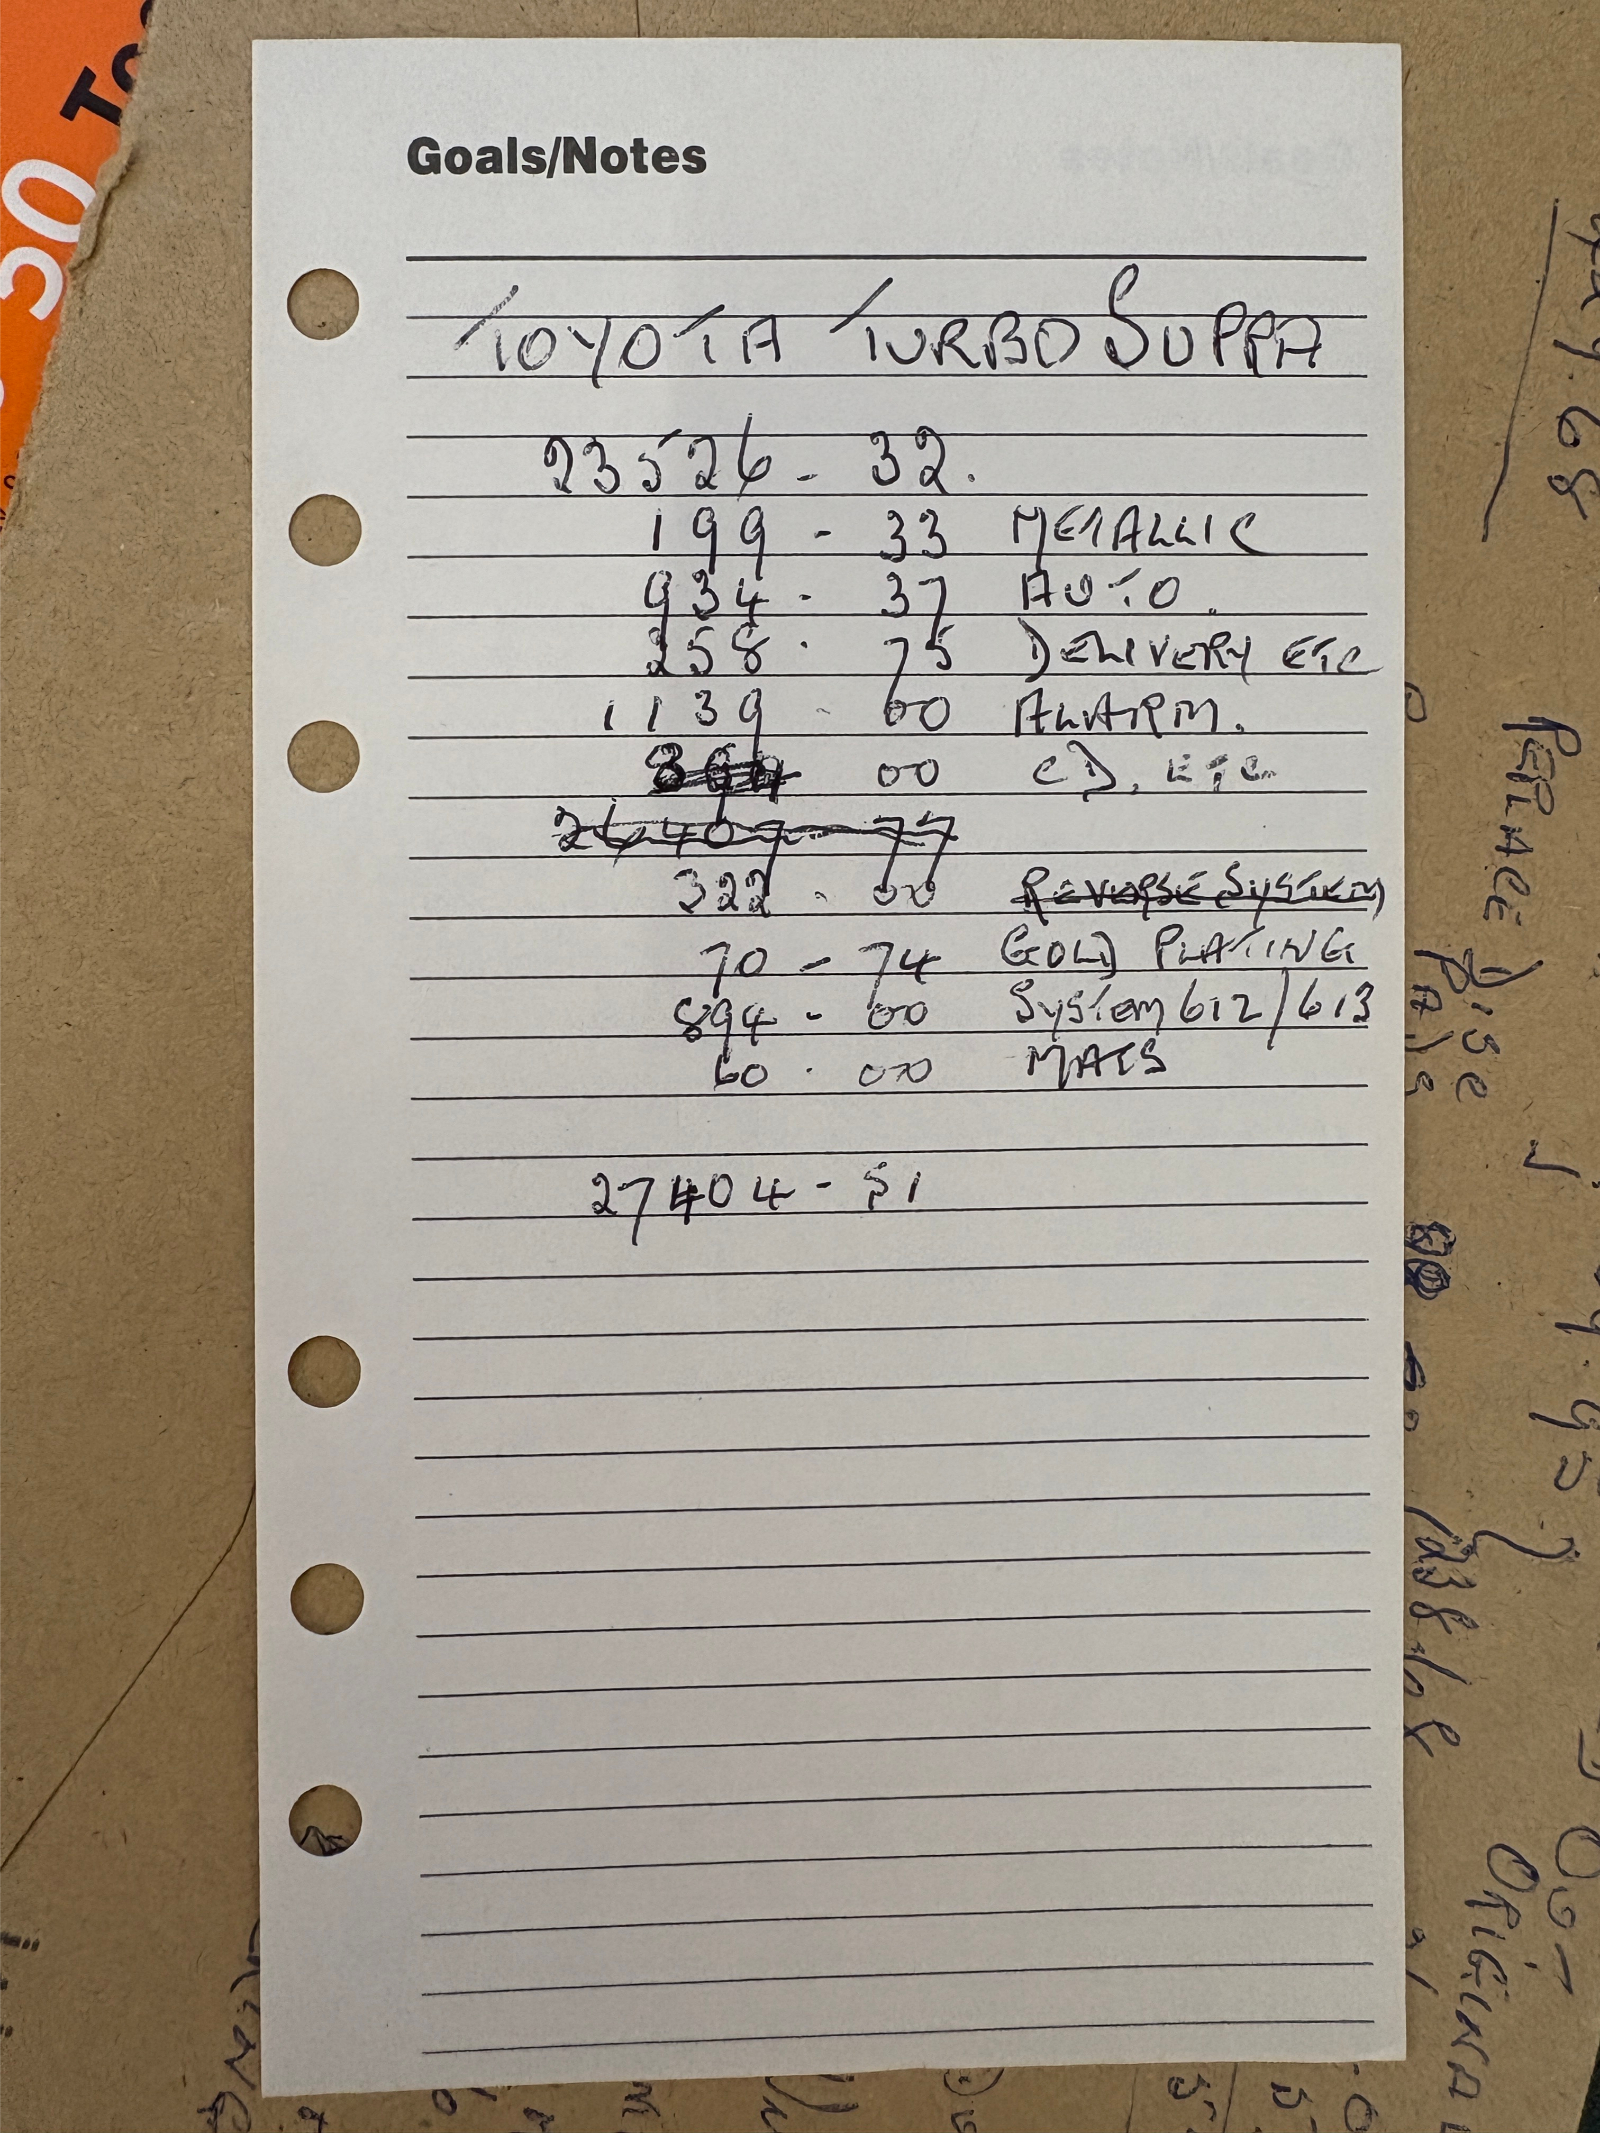 Goals/Notes
TOYOTA TURBO SUPRA
23526 - 32.
199 - 33 METALLIC
934 - 37 AUTO.
258 · 75 DELIVERY ETC
1139 - 00 ALARM.
00 CD, ETC
26407 - 77
322 · 00 REVERSE SYSTEM
70 - 74 GOLD PLATING
894 - 00 System 612/613
60 · 00 MATS
27404 - 51
50
REPLACE DISC
PADS
ORIGINAL